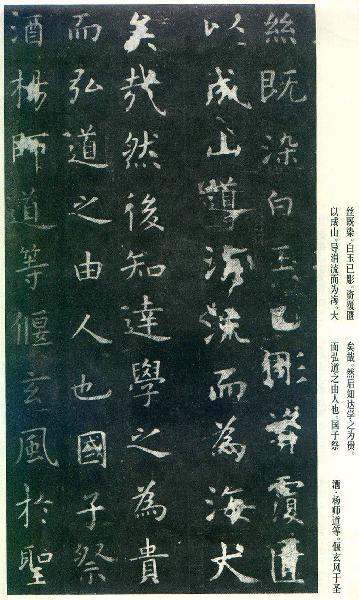 絲既染白玉已彫資覆匱
以成山導涓流而為海大
矣哉然後知達學之為貴
而弘道之由人也國子祭
酒楊師道等偃玄風於聖
丝既染。白玉已彫。资覆匮
以成山。导涓流而为海。大
矣哉。然后知达学之为贵。
而弘道之由人也。国子祭
酒。杨师道等。偃玄风于圣